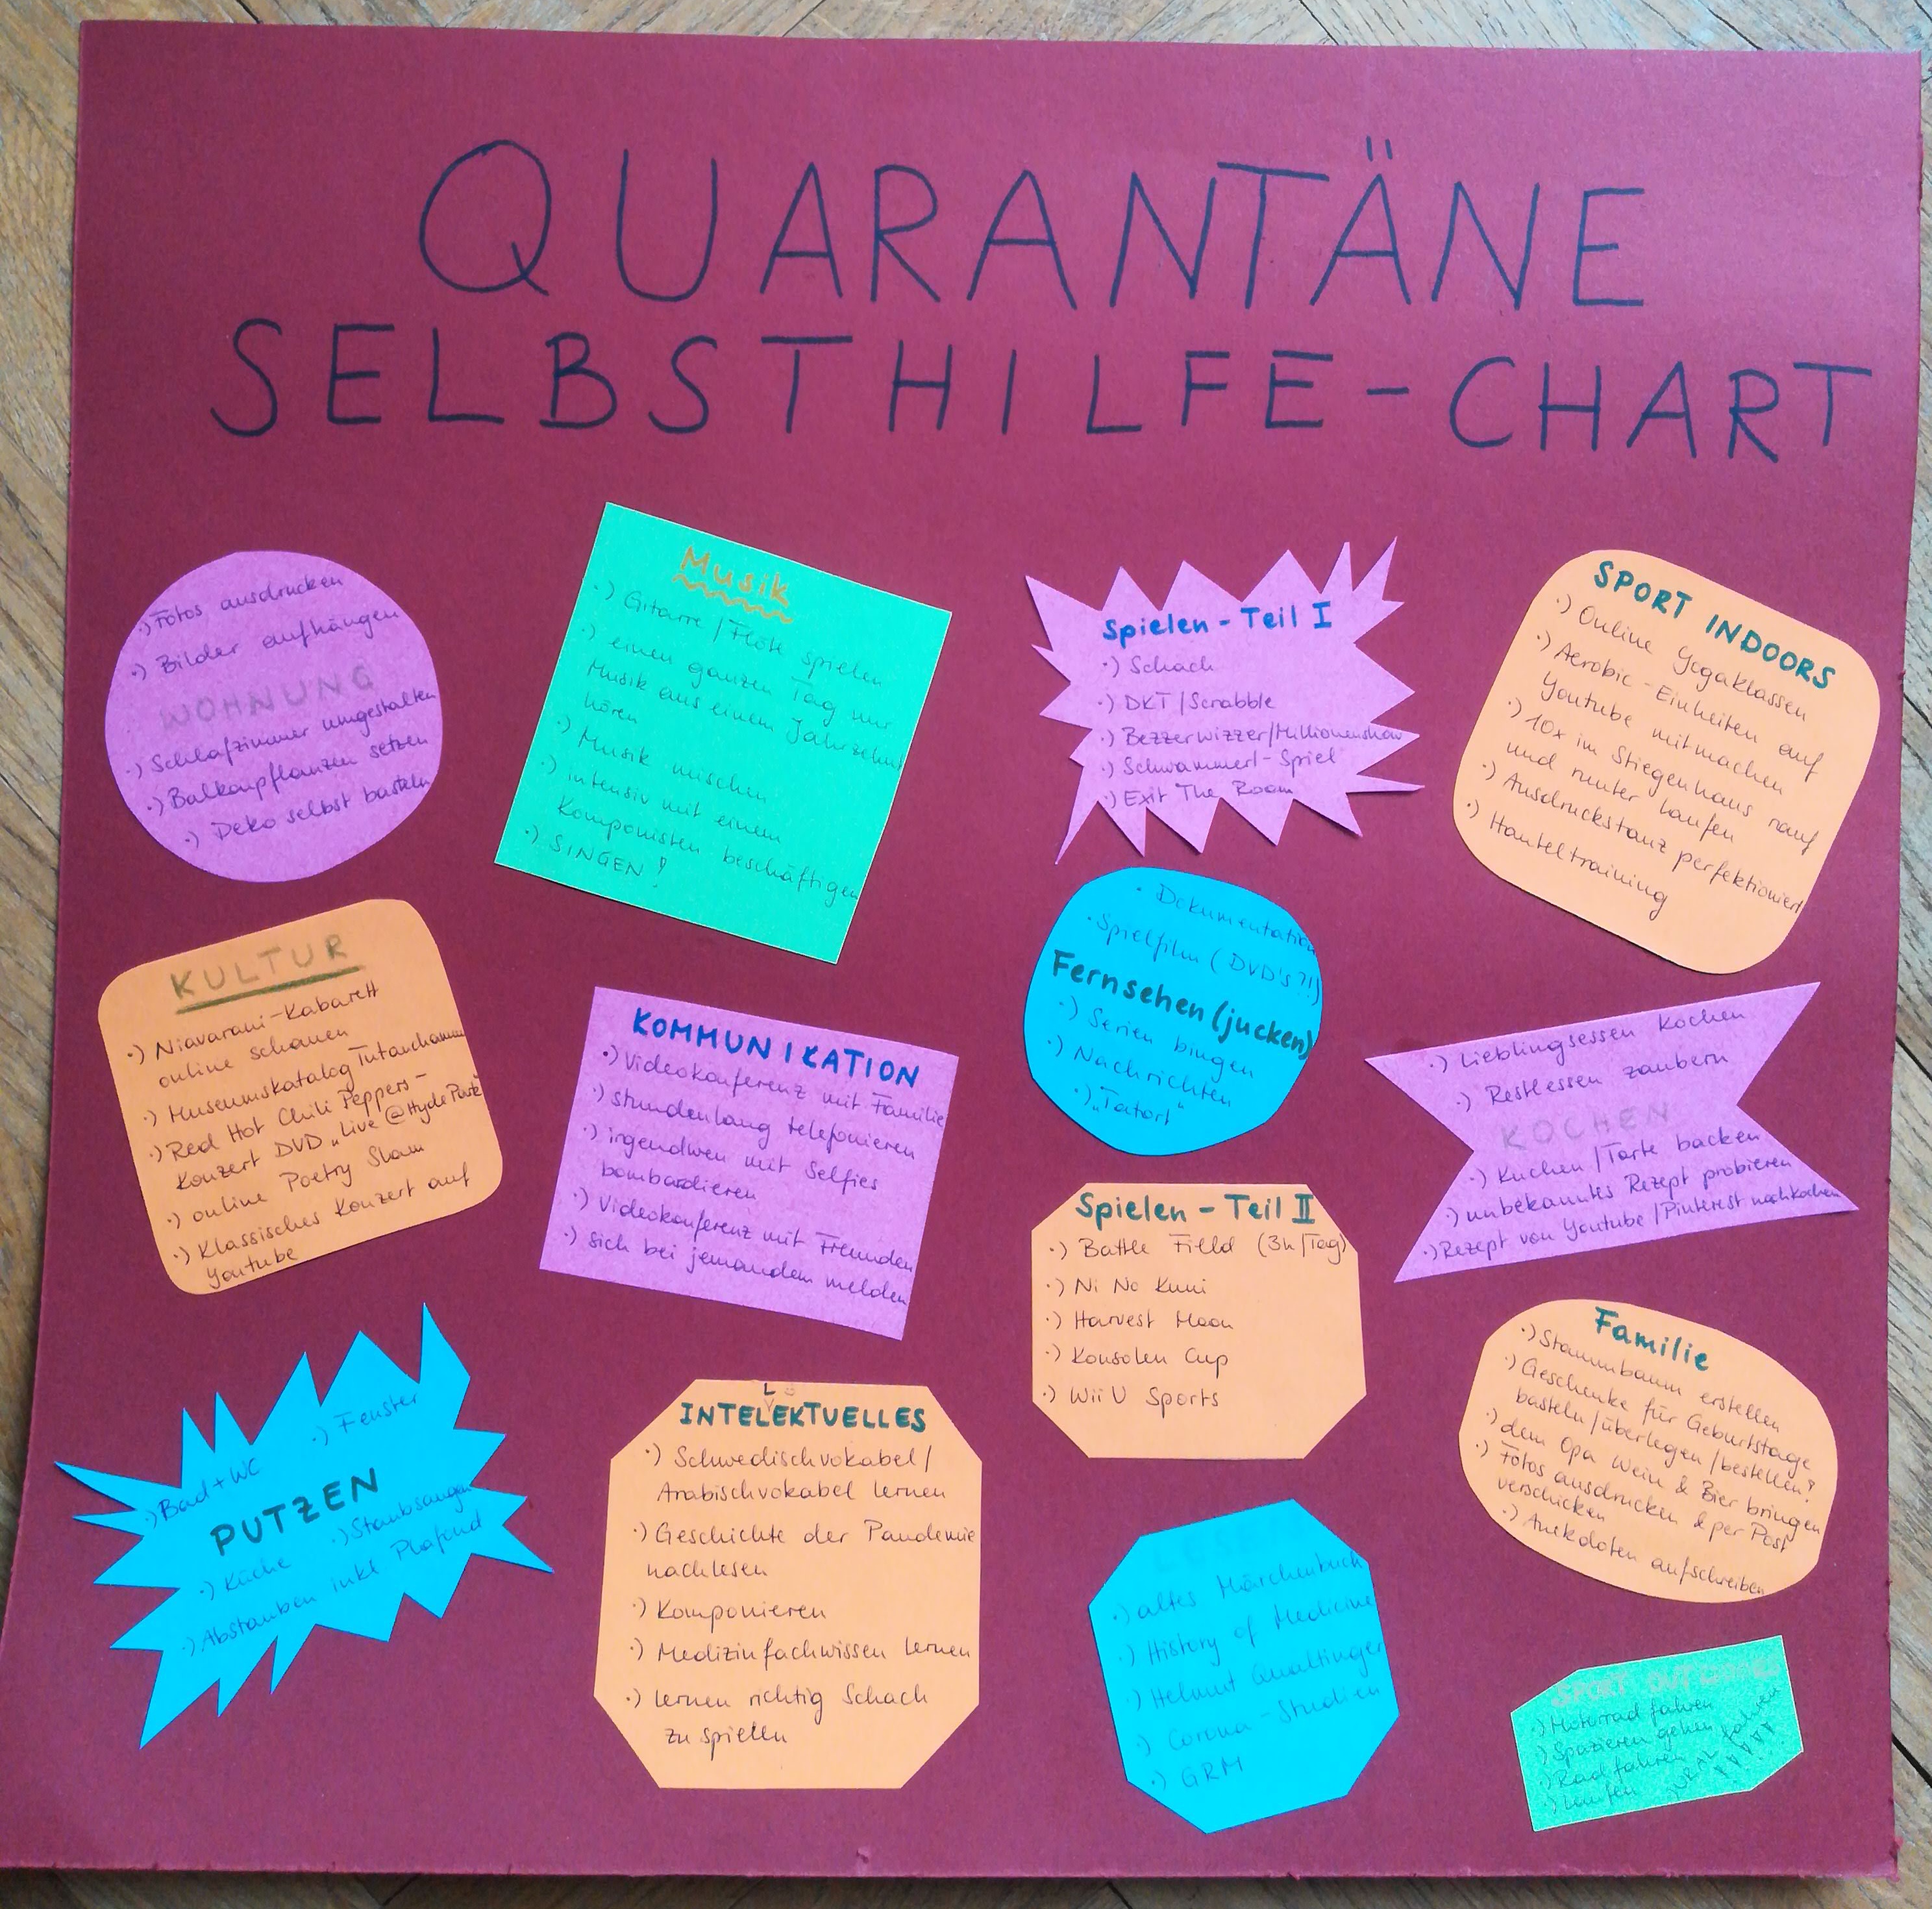 QUARANTÄNE
SELBSTHILFE-CHART
·) Fotos ausdrucken
·) Bilder aufhängen
WOHNUNG
·) Schlafzimmer umgestalten
·) Balkonpflanzen setzen
·) Deko selbst basteln
Musik
·) Gitarre / Flöte spielen
·) einen ganzen Tag nur
Musik aus einem Jahrzehnt
hören
·) Musik mischen
·) intensiv mit einem
Komponisten beschäftigen
·) SINGEN!
Spielen - Teil I
·) Schach
·) DKT / Scrabble
·) Bezzerwizzer/Millionenshow
·) Schwammerl-Spiel
·) Exit The Room
SPORT INDOORS
·) Online Yogaklassen
·) Aerobic-Einheiten auf
Youtube mitmachen
·) 10x im Stiegenhaus rauf
und runter laufen
·) Ausdruckstanz perfektioniert
·) Hanteltraining
KULTUR
·) Niavarani-Kabarett
online schauen
·) Museumskatalog Tutanchamun
·) Red Hot Chili Peppers-
Konzert DVD „Live @ Hyde Park"
·) online Poetry Slam
·) Klassisches Konzert auf
Youtube
KOMMUNIKATION
·) Videokonferenz mit Familie
·) stundenlang telefonieren
·) irgendwen mit Selfies
bombardieren
·) Videokonferenz mit Freunden
·) sich bei jemandem melden
· Dokumentation
· Spielfilm (DVD's?!)
Fernsehen (jucken)
·) Serien bingen
·) Nachrichten
·) „Tatort"
·) Lieblingsessen kochen
·) Restlessen zaubern
KOCHEN
·) Kuchen / Torte backen
·) unbekanntes Rezept probieren
·) Rezept von Youtube / Pinterest nachkochen
Spielen - Teil II
·) Battle Field (3h/Tag)
·) Ni No Kuni
·) Harvest Moon
·) Konsolen Cup
·) Wii U Sports
Familie
·) Stammbaum erstellen
·) Geschenke für Geburtstage
basteln / überlegen / bestellen!
·) dem Opa Wein & Bier bringen
·) Fotos ausdrucken & per Post
verschicken
·) Anekdoten aufschreiben
·) Fenster
·) Bad + WC
PUTZEN
·) Staubsaugen
·) Küche
·) Abstauben inkl Plafond
L
INTELEKTUELLES
·) Schwedischvokabel /
Arabischvokabel lernen
·) Geschichte der Pandemie
nachlesen
·) Komponieren
·) Medizinfachwissen lernen
·) lernen richtig Schach
zu spielen
·) altes Märchenbuch
·) History of Medicine
·) Helmut Qualtinger
·) Corona-Studien
·) GRM
SPORT OUTDOORS
·) Motorrad fahren
·) Spazieren gehen
·) Radfahren
·) Laufen
·) URAL fahren